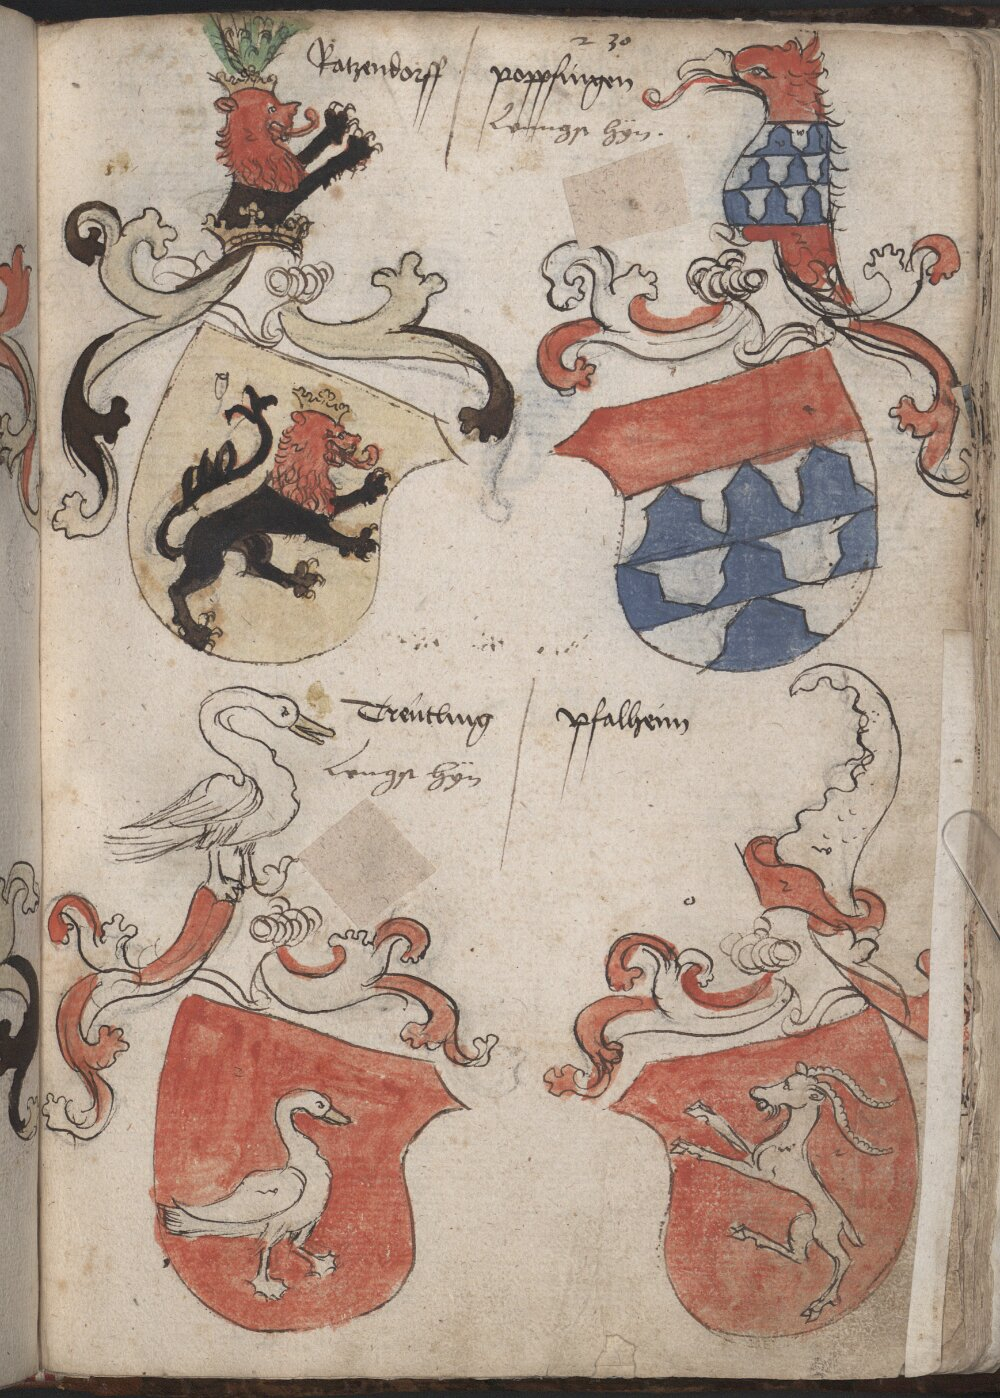 230
Ratzendorff
poppfingen
Lemgst hÿn.
Treutling
Lemgst hÿn
pfalheim